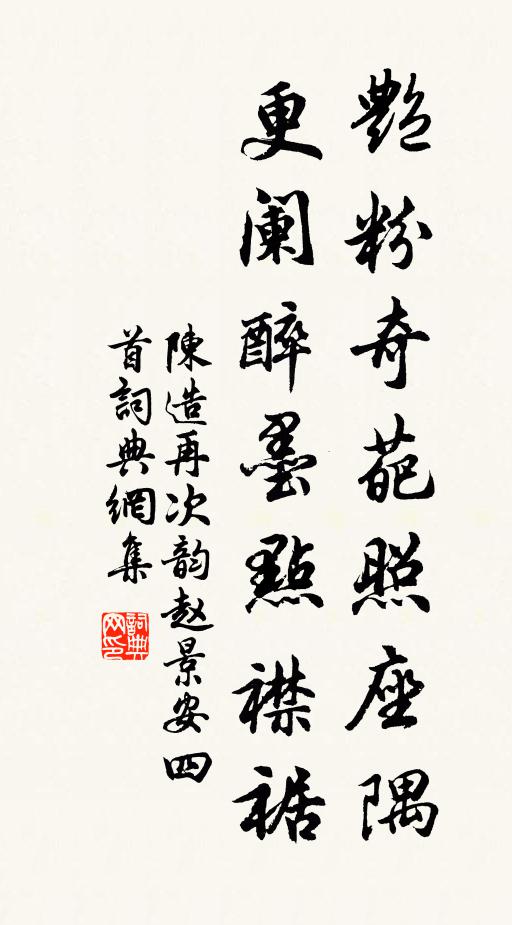 艷粉奇葩照座隅
更闌醉墨點襟裾
陳造再次韵赵景安四
首詞典網集
詞典网印